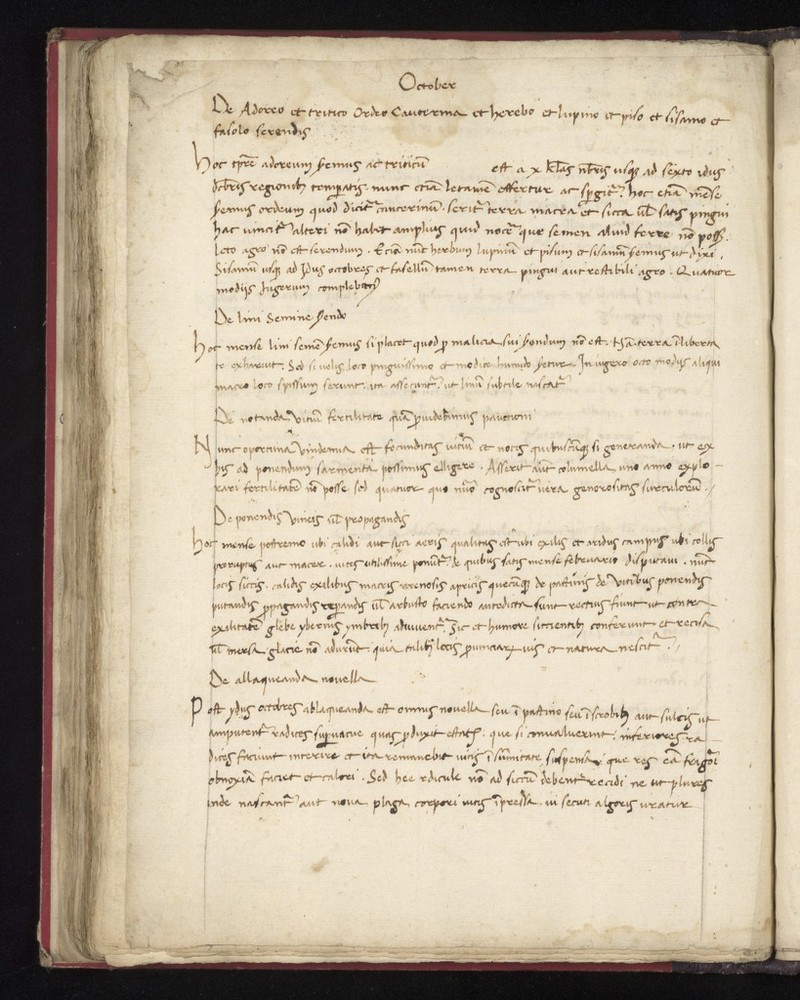 October
De Adoreo et tritico Ordeo Canterina et herebo et lupino et piso et sisamo et
fasolo serendis
hoc tp̄re adoreum semus ac triticū est a x kl̄as nb̄ris usq; ad sexto idus
dcb̄ris regionib; temperatis nunc etiā letamē effertur ac spgit᷑. hoc etiā mēse
semus ordeum quod dicit᷑ cancerinū. serit᷑ terra macra et sicca ul̄ satis pingui
hac vincit᷑ alteri nō habet amplius quid nocet que semen aliud ferre nō poss.
loco agro nō est serendum. Eciā nūc herbum lupinū et pisum et sisamū semus ut dixi.
Sisamū usq; ad Idus octobres et fasellū tamen terra pingui aut restibili agro. Quatuor
modijs Iugerum complebit᷑
De lini Semine sendo
hoc mense lini semē semus si placet quod p malicia sui sendum nō est. Nā terra liberta
te exhaurit. Sed si uelis loco pinguissimo et modice humido setur. In iugero octo modijs aliqui
macro loco spissum serunt. ita assecunt᷑. ut linū subtile nascat᷑
De notanda vitiū fertilitate quā prouidebimus pastioni
Nunc oportuna Vindemia est fecunditas uitiū et notis quibuscūq; si generanda. ut ex
his ad ponendum sarmenta possimus elligere. Asserit aūt columella uno anno explo
rari fertilitatē nō posse sed quatuor quo nūo cognoscit᷑ uera generositas surculorū.
De ponendis Vineis ul̄ propagandis
hoc mense postremo ubi calidi aut sicci aeris qualitas est ubi exilis et aridus campus ubi collis
preruptus aut macer. uites utilissime ponūt᷑. de quibus satis mense februario disputaui. nūc
locis siccis. calidis exilibus macris arenosis apricis quecūq; de pastinis de vitibus ponendis
putandis propagandis reparandis ul̄ arbusto faciendo antedicta sunt rectius fiunt ut contra
exilitatē glebe ybernis ymbrib; adiuuent᷑. Sic et humore siccientib; conferunt et recisa
ul̄ inersa glacie nō adurūt. quia talib; locis
De allaqueanda nouella
Post ydus octobres ablaqueanda est omnis nouella seu ī pastino seu ī scrobib; aut sulcis ut
amputent᷑ radices supuacue quas pduxit estas. que si conualuerint. inferiores ra
dices faciunt interire et ita remanebit uitis ī sūmitate suspensa. que res eā frigori
obnoxiā faciet et calori. Sed hee rdicule nō ad siccū debent᷑ recidi ne ut plures
inde nascant᷑ aut noua plaga corpori uitis īpressa. ui secuti algoris uratur